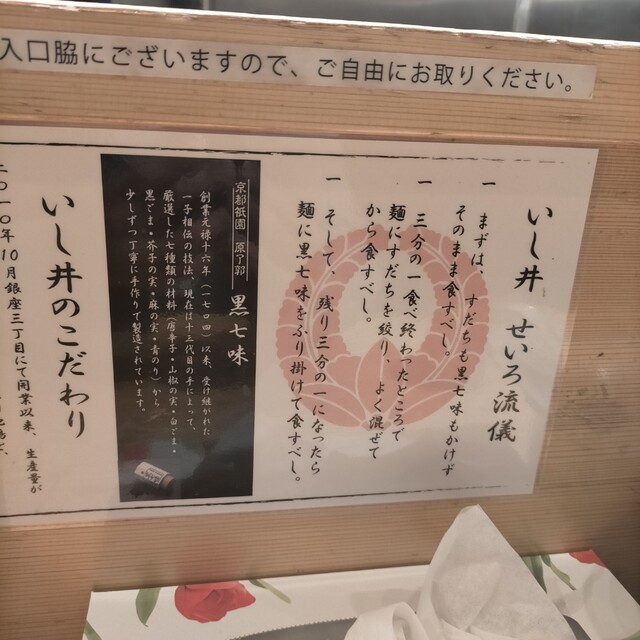 入口脇にございますので、ご自由にお取りください。
いし井 せいろ流儀
一 まずは、すだちも黒七味もかけず
そのまま食すべし。
一 三分の一食べ終わったところで
麺にすだちを絞り、よく混ぜて
から食すべし。
一 そして、残り三分の一になったら
麺に黒七味をふり掛けて食すべし。
京都祇園 原了郭
黒七味
創業元禄十六年(一七〇四)以来、受け継がれた
一子相伝の技法、現在は十三代目の手によって、
厳選した七種類の材料(唐辛子・山椒の実・白ごま・
黒ごま・芥子の実・麻の実・青のり)から
少しずつ丁寧に手作りで製造されています。
いし井のこだわり
二〇一〇年10月銀座三丁目にて開業以来、生産量が